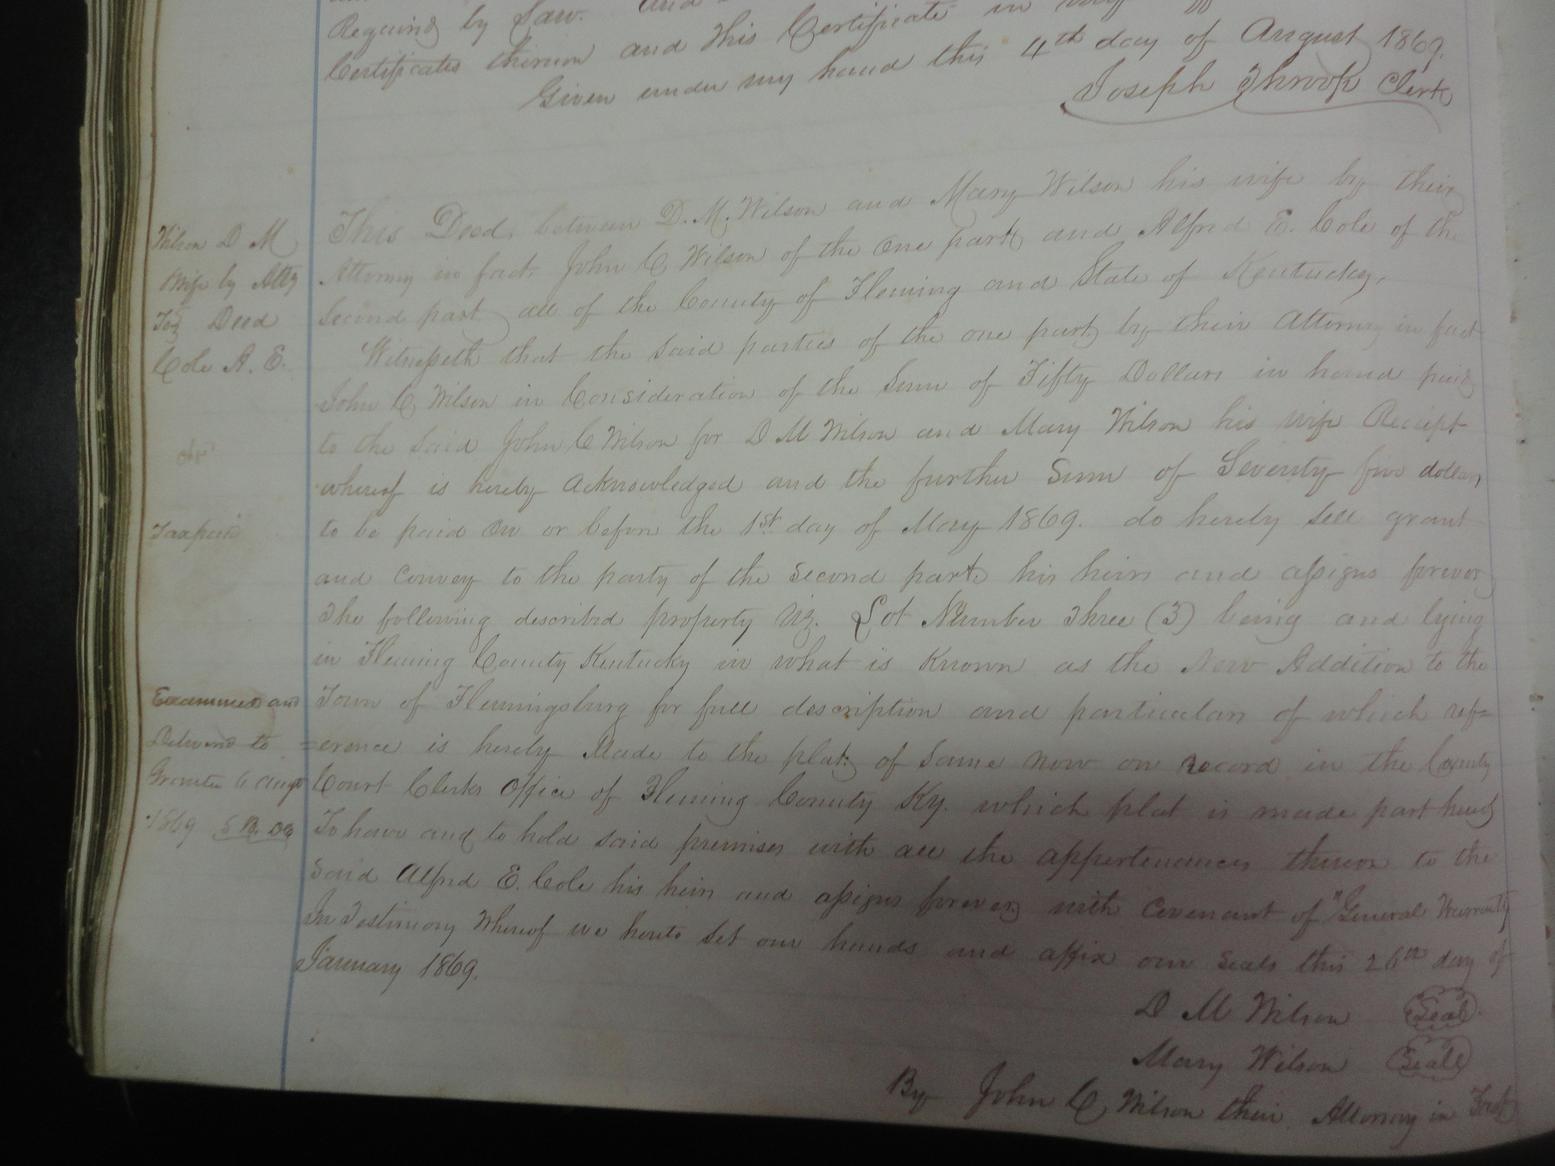 Required by Law. and
Certificates thereon and this Certificate in my
Given under my hand this 4th day of August 1869.
Joseph Throop Clerk
Wilson D M
Wife by Atty
To Deed
Cole A. E.
Tax paid
Examined and
Delivered to
Grantee 6 Augt
1869
This Deed, between D. M. Wilson and Mary Wilson his wife by their
Attorney in fact John C Wilson of the one part and Alfred E. Cole of the
second part all of the County of Fleming and State of Kentucky,
Witnesseth that the said parties of the one part by their Attorney in fact
John C Wilson in Consideration of the Sum of Fifty Dollars in hand paid
to the said John C Wilson for D M Wilson and Mary Wilson his wife Receipt
whereof is hereby acknowledged and the further Sum of Seventy five dollars
to be paid on or before the 1st day of May 1869. do hereby sell grant
and convey to the party of the second part his heirs and assigns forever
The following described property viz. Lot Number Three (3) being and lying
in Fleming County Kentucky in what is Known as the New Addition to the
Town of Flemingsburg for full description and particulars of which ref=
=erence is hereby Made to the plat of Same now on record in the County
Court Clerks Office of Fleming County Ky. which plat is made part hereof
To have and to hold said premises with all the appertenances thereon to the
said Alfred E. Cole his heirs and assigns forever with Covenant of "General Warranty
In Testimony Whereof we hereto set our hands and affix our seals this 26th day of
January 1869.
D M Wilson Seal
Mary Wilson Seal
By John C Wilson their Attorney in Fact